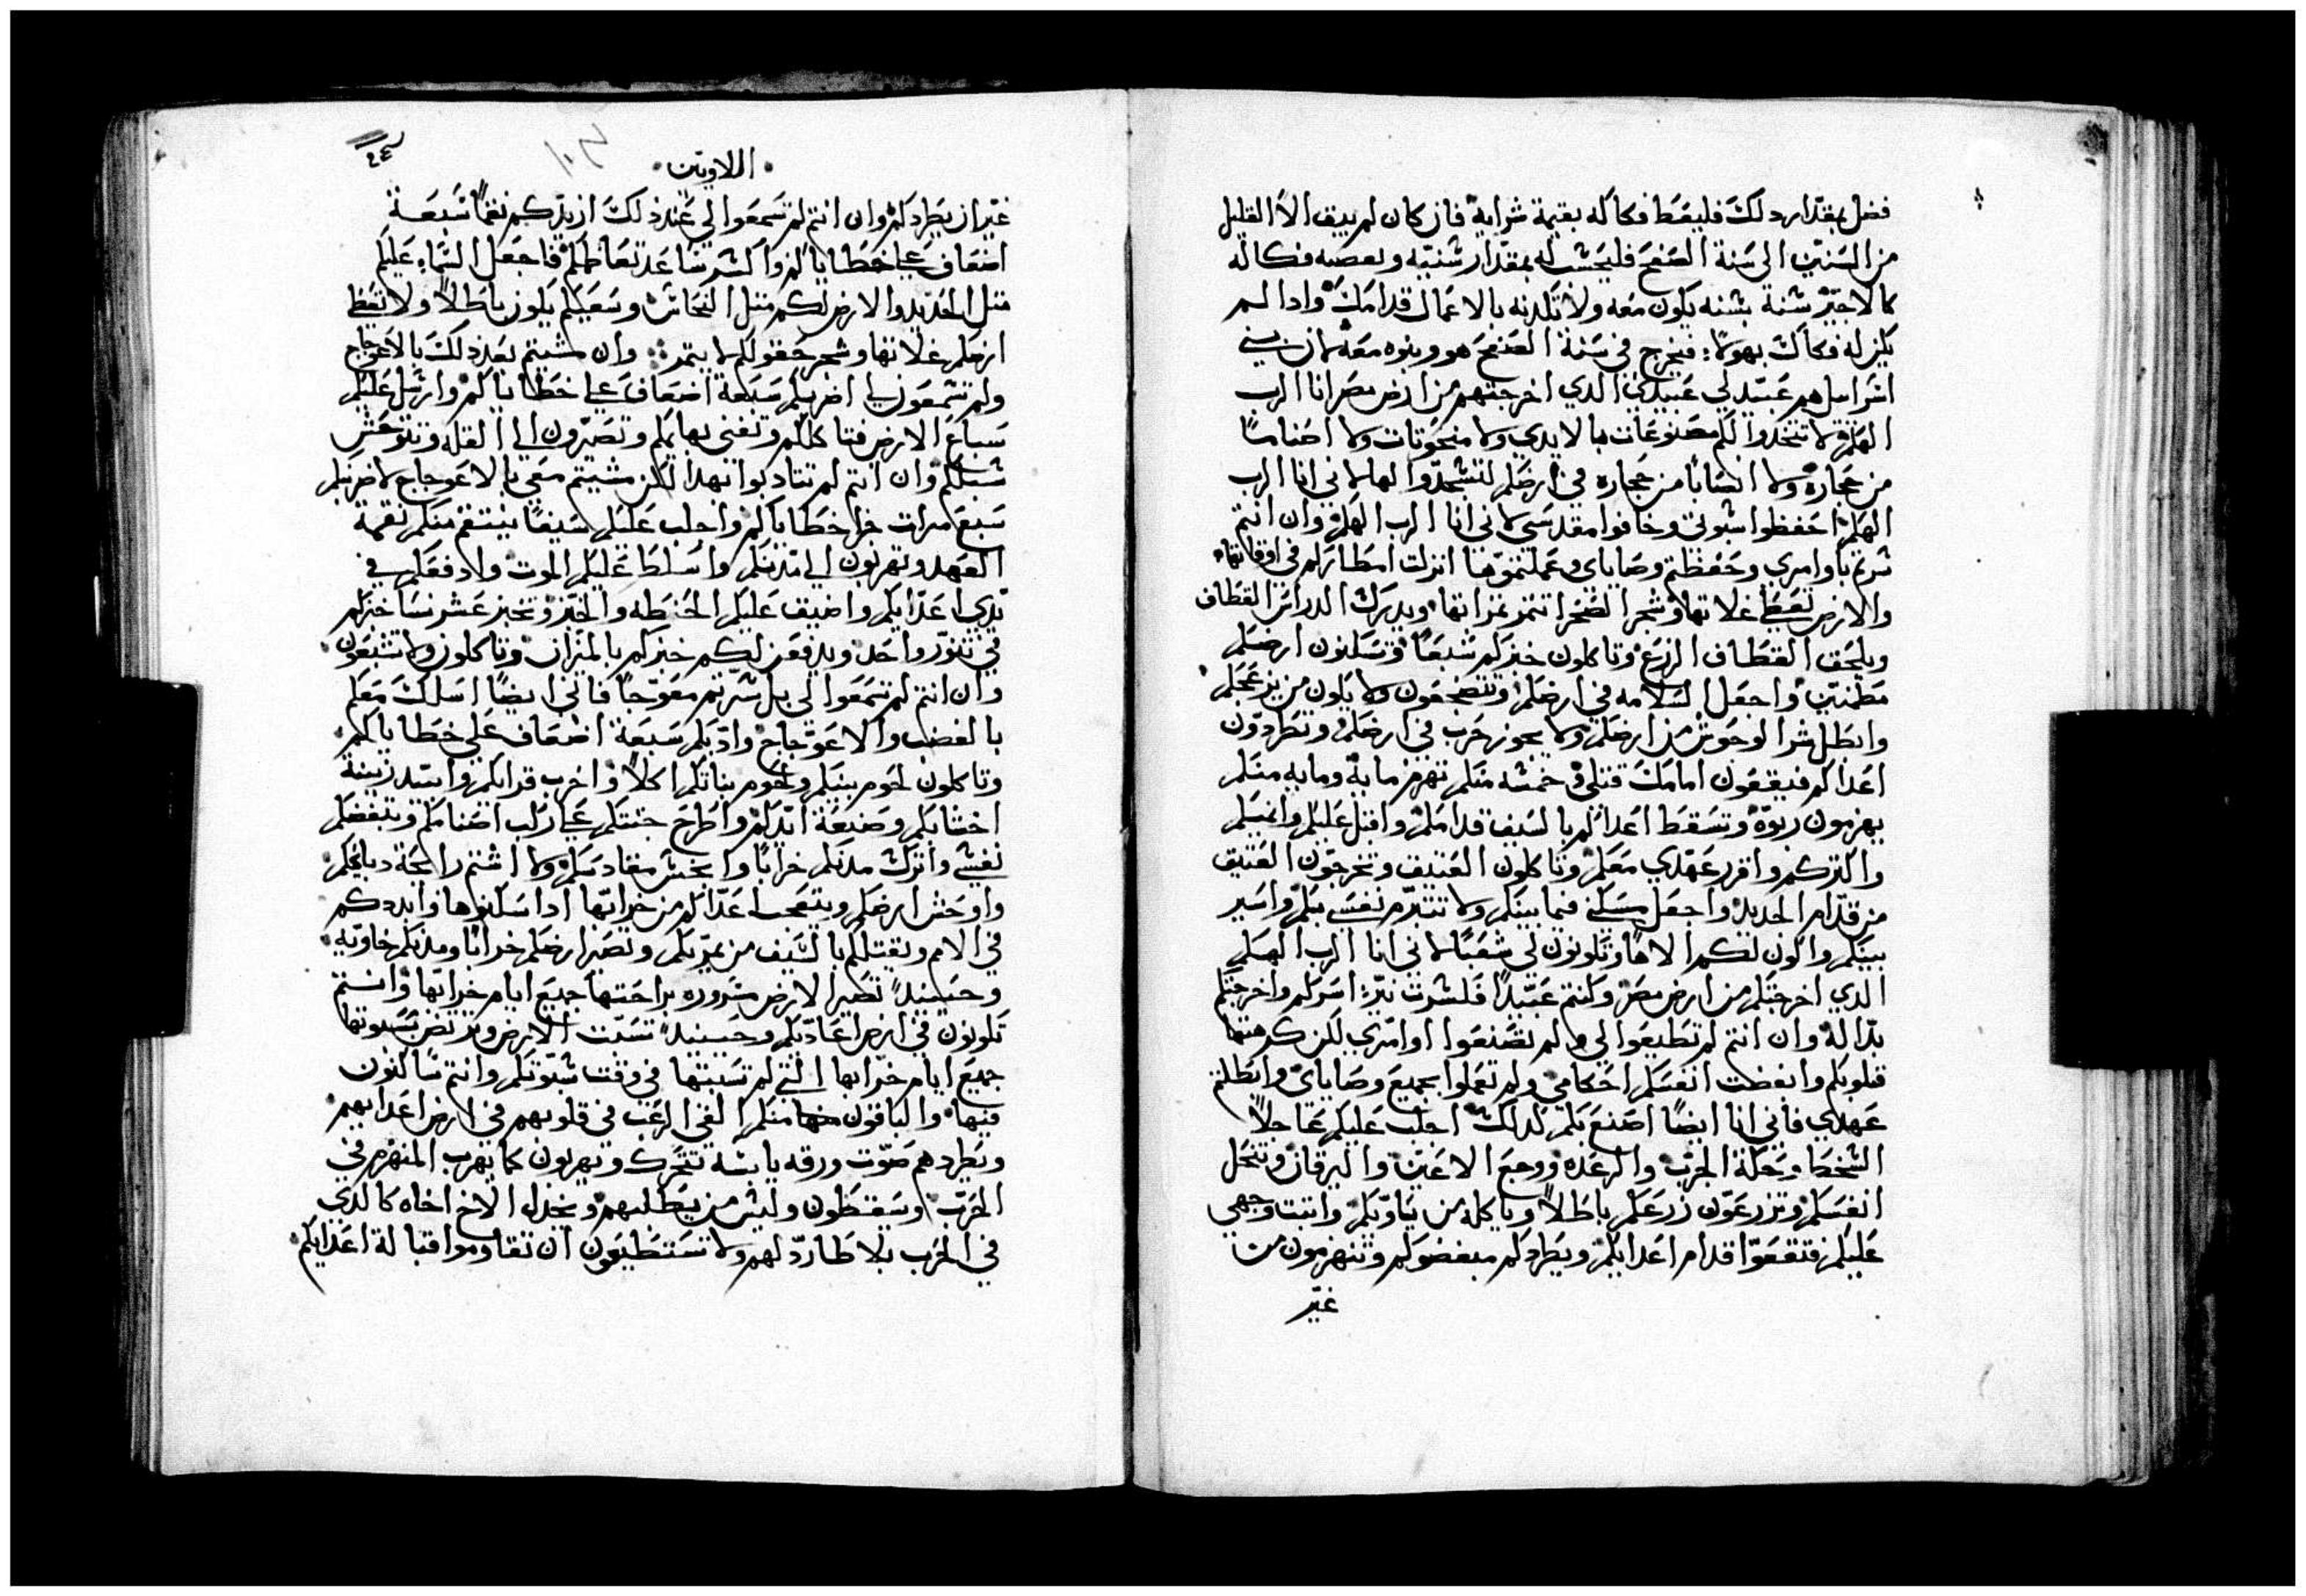 فضل بمقدار دلك فليعط فكاكه بقيمة شرايه فان كان لم يبق الا القليل
من السنين الى سنة الصفح فليحسب له بمقدار سنيه ويعطيه فكاكه
كالاجير سنة بسنه يكون معه ولا تكدنه بالاعمال قدامك وادا لم
يكن له فكاك بهولا فيخرج في سنة الصفح هو وبنوه معه لان بني
اسراييل هم عبيد لي عبيدي الدي اخرجتهم من ارض مصر انا الرب
الهكم لا تتخدوا لكم مصنوعات بالايدي ولا منحوتات ولا اصناما
من حجاره ولا انصابا من حجاره في ارضكم لتسجدوا لها لاني انا الرب
الهكم احفظوا سبوتي وخافوا مقدسي لاني انا الرب الهكم وان انتم
سرتم باوامري وحفظتم وصاياي وعملتموها انزلت امطاركم في اوقاتها
والارض تعطي غلاتها وشجر الصحرا تتمر تمراتها ويدرك الدراس القطاف
ويلحق القطاف الزرع وتاكلون خبزكم شبعا وتسكنون ارضكم
مطمنين واجعل السلامه في ارضكم وتضجعون ولا يكون من يزعجكم
وابطل شر الوحوش من ارضكم ولا يجوز حرب في ارضكم وتطردون
اعداكم فيقعون امامك قتلى خمسه منكم تهزم مايه ومايه منكم
يهزمون ربوه وتسقط اعداكم بالسيف قدامكم واقبل عليكم وانميكم
واكتركم واقرر عهدي معكم وتاكلون العتيق وتخرجون العتيق
من قدام الجديد واجعل مسكني فيما بينكم ولا تتبرم نفسي بكم واسير
بينكم واكون لكم الاها وتكونون لي شعبا لاني انا الرب الهكم
الدي اخرجتكم من ارض مصر وكنتم عبيدا فكسرت نير اسركم واخرجتكم
بدالة وان انتم لم تطيعوا لي ولم تصنعوا اوامري لكن كرهتها
قلوبكم وابغضت انفسكم احكامي ولم تعملوا بجميع وصاياي وابطلتم
عهدي فاني انا ايضا اصنع بكم كدلك اجلب عليكم عاجلا
وحكة الجرب والرعده ووجع الاعين واليرقان وتنحل
انفسكم وتزرعون زرعكم باطلا وياكله من يناويكم واتبت وجهي
عليكم فتقعوا قدام اعدايكم ويطردكم مبغضوكم وتنهزمون من
غير
اللاويين
غير ان يطردكم وان انتم لم تسمعوا لي عند دلك ازيدكم نقما سبعة
اضعاف على خطاياكم واكسر تعاظمكم واجعل السماء عليكم
متل الحديد والارض لكم متل النحاس وسعيكم يكون باطلا ولا تعطي
ارضكم غلاتها وشجر حقولكم لا يتمر وان مشيتم بعد دلك بالاعوجاج
ولم تسمعون لي اضربكم سبعة اضعاف على خطاياكم وارسل عليكم
سباع الارض فتاكلكم وتفني بهايمكم وتصيرون الى القله وتتوحش
سبلكم وان انتم لم تتادبوا بهدا لكن مشيتم معي بالاعوجاج لاضربكم
سبع مرات جزا خطاياكم واجلب عليكم سيفا ينتقم منكم نقمة
العهد وتهربون الى مدنكم واسلط عليكم الموت وادفعكم في
يدي اعدايكم واضيق عليكم الحنطه والخبز وتخبز عشر نسا خبزكم
في تنور واحد ويدفعن لكم خبزكم بالميزان وتاكلون ولا تشبعون
وان انتم لم تسمعوا لي بل سرتم معوجا فاني ايضا اسلك معكم
بالغضب والاعوجاج وادبكم سبعة اضعاف على خطاياكم
وتاكلون لحوم بنيكم ولحوم بناتكم اكلا واخرب قراكم وابيد زينة
اخشابكم وصنيعة ايديكم واطرح جتتكم على ركب اصنامكم وتبغضكم
نفسي واترك مدنكم خرابا وابخس مقادسكم ولا اشتم رايحة دبايحكم
واوحش ارضكم ويتعجب اعداكم من خرابها ادا سكنوها وابددكم
في الامم ويقتلكم بالسيف من يمر بكم وتصير ارضكم خرابا ومدنكم خاويه
وحينيد تصير الارض مسروره براحتها جميع ايام خرابها وانتم
تكونون في ارض اعاديكم وحينيد تسبت الارض وترضى بسبوتها
جميع ايام خرابها التي لم تسبتها في وقت سبوتكم وانتم ساكنون
فيها والباقون منكم القي الرعب في قلوبهم في ارض اعدايهم
ويطردهم صوت ورقه يابسة تتحرك ويهربون كما يهرب المنهزم في
الحرب ويسقطون وليس من يطلبهم ويخدل الاخ اخاه كالدي
في الحرب بلا طارد لهم ولا تستطيعون ان تقاوموا قبالة اعدايكم